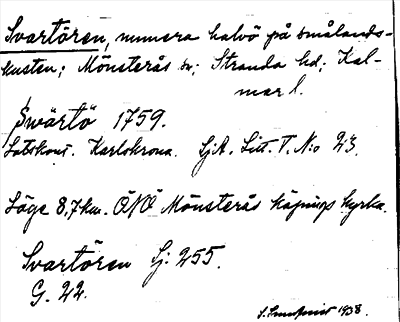 Svartören, numera halvö på smålands-
kusten; Mönsterås sn; Stranda hd; Kal-
mar l.
Swärtö 1759.
Lotskont. Karlskrona. SjA. Litt. T. N:o 23.
Läge 8,7 km. ÖNÖ Mönsterås köpings kyrka.
Svartören Sj: 255.
G. 22.
1938.